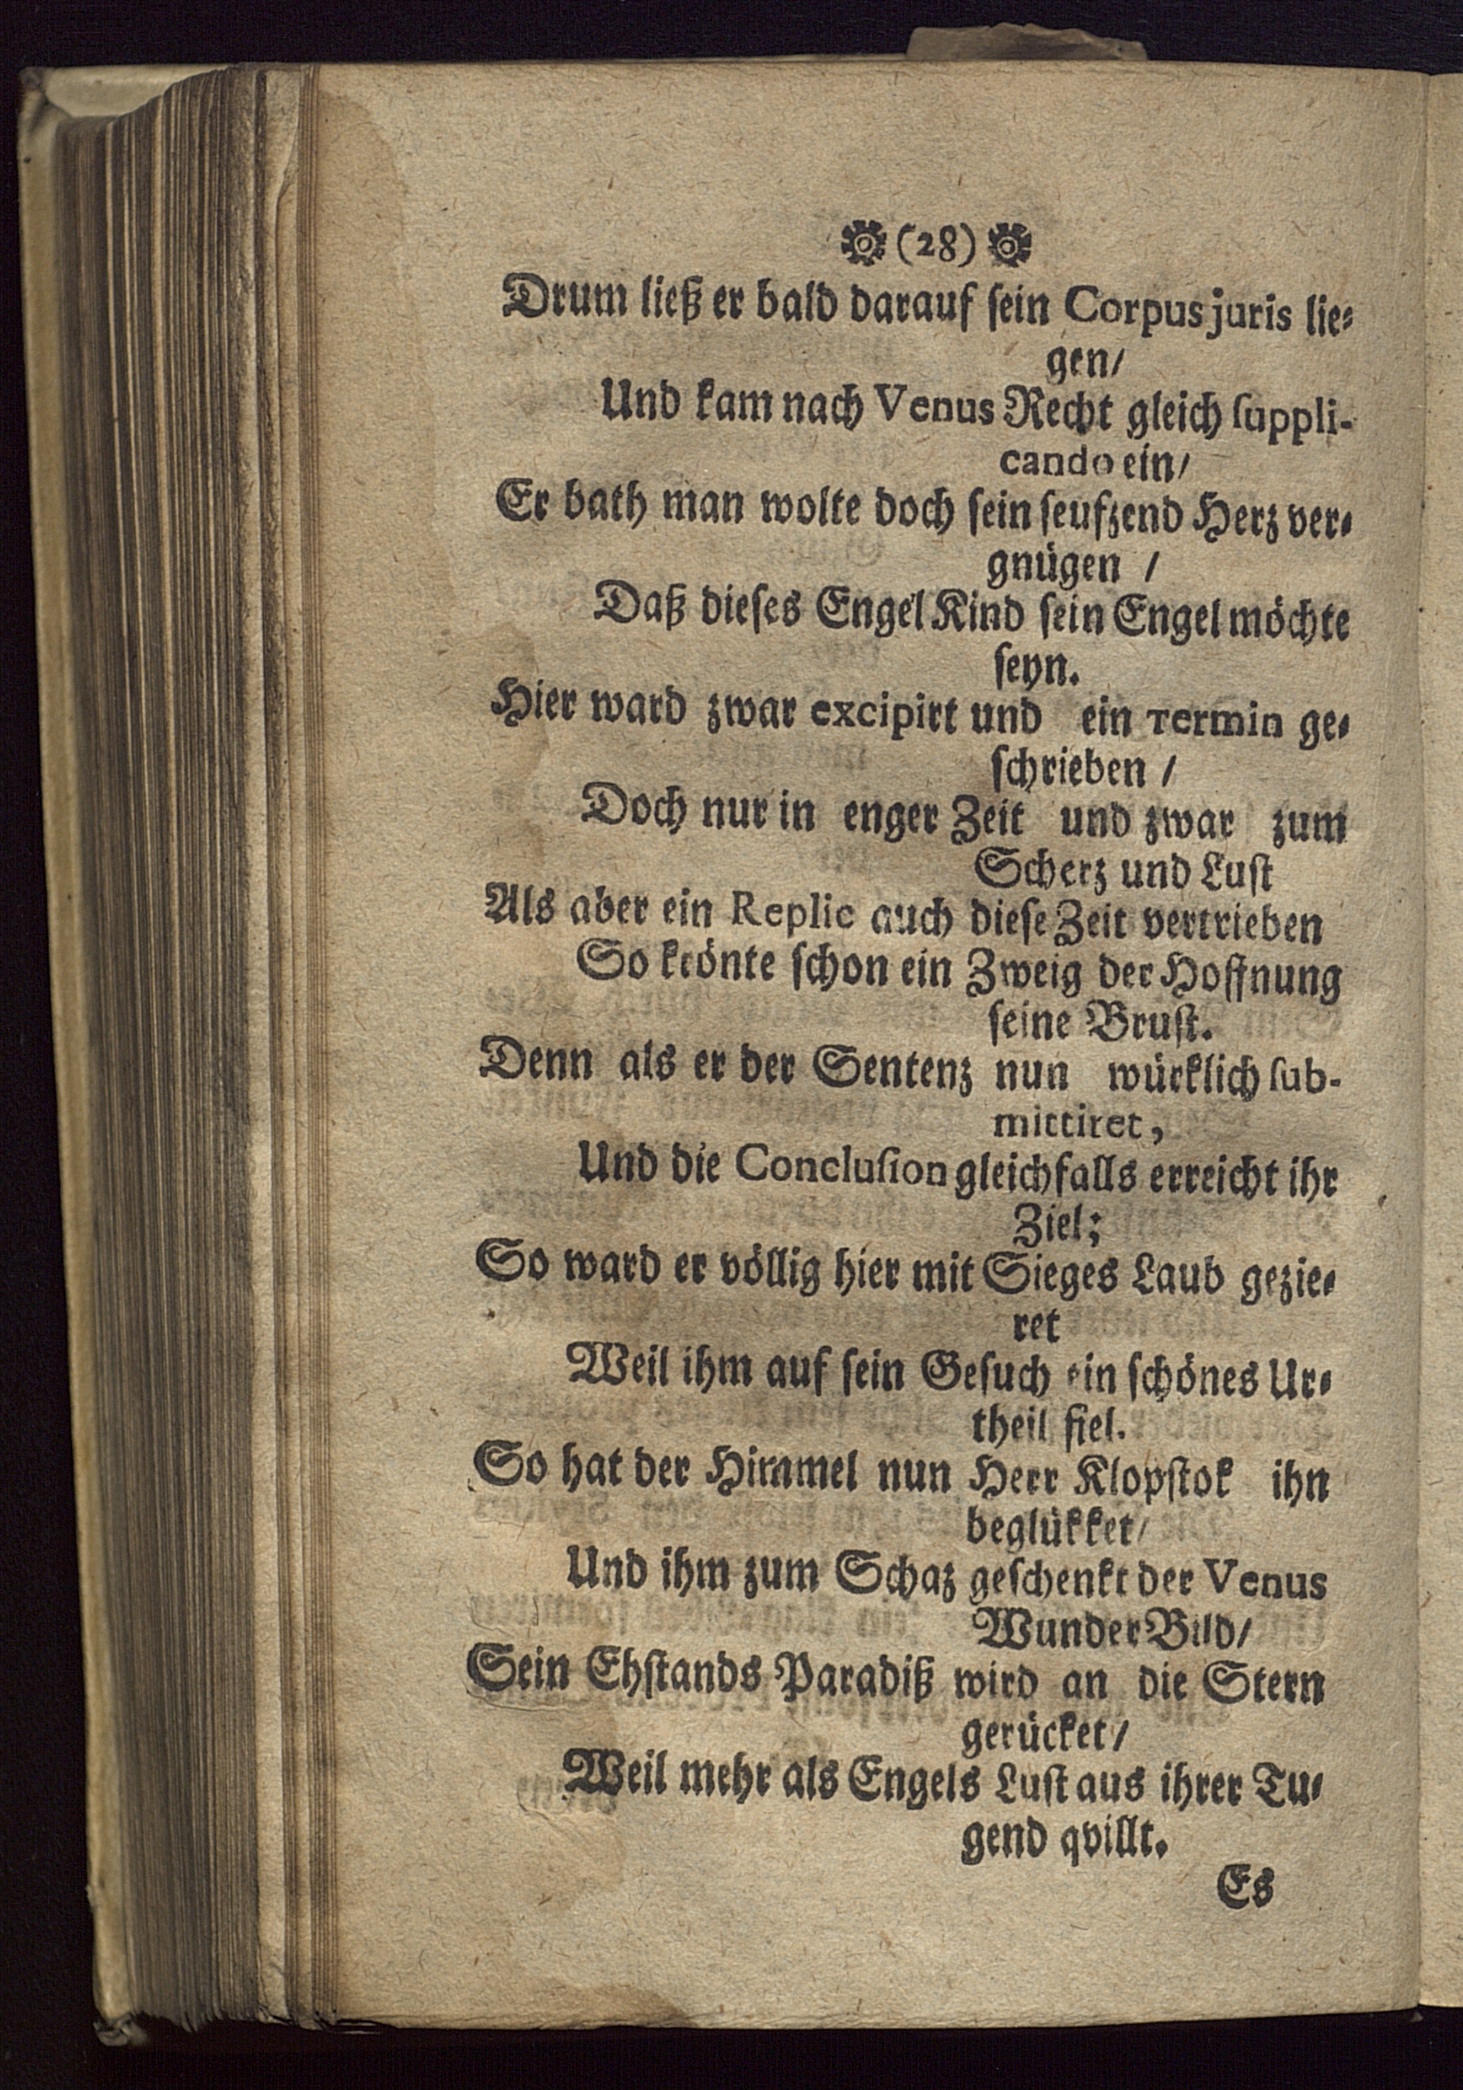 (28)
Drum ließ er bald darauf sein Corpus juris lie-
gen/
Und kam nach Venus Recht gleich suppli-
cando ein/
Er bath man wolte doch sein seufzend Herz ver-
gnügen /
Daß dieses Engel Kind sein Engel möchte
seyn.
Hier ward zwar excipirt und ein Termin ge-
schrieben /
Doch nur in enger Zeit und zwar zum
Scherz und Lust
Als aber ein Replic auch diese Zeit vertrieben
So krönte schon ein Zweig der Hoffnung
seine Brust.
Denn als er der Sentenz nun würklich sub-
mittiret,
Und die Conclusion gleichfalls erreicht ihr
Ziel;
So ward er völlig hier mit Sieges Laub gezie-
ret
Weil ihm auf sein Gesuch ein schönes Ur-
theil fiel.
So hat der Himmel nun Herr Klopstok ihn
beglükket/
Und ihm zum Schaz geschenkt der Venus
Wunder Bild/
Sein Ehstands Paradiß wird an die Stern
gerücket/
Weil mehr als Engels Lust aus ihrer Tu-
gend qvillt.
Es